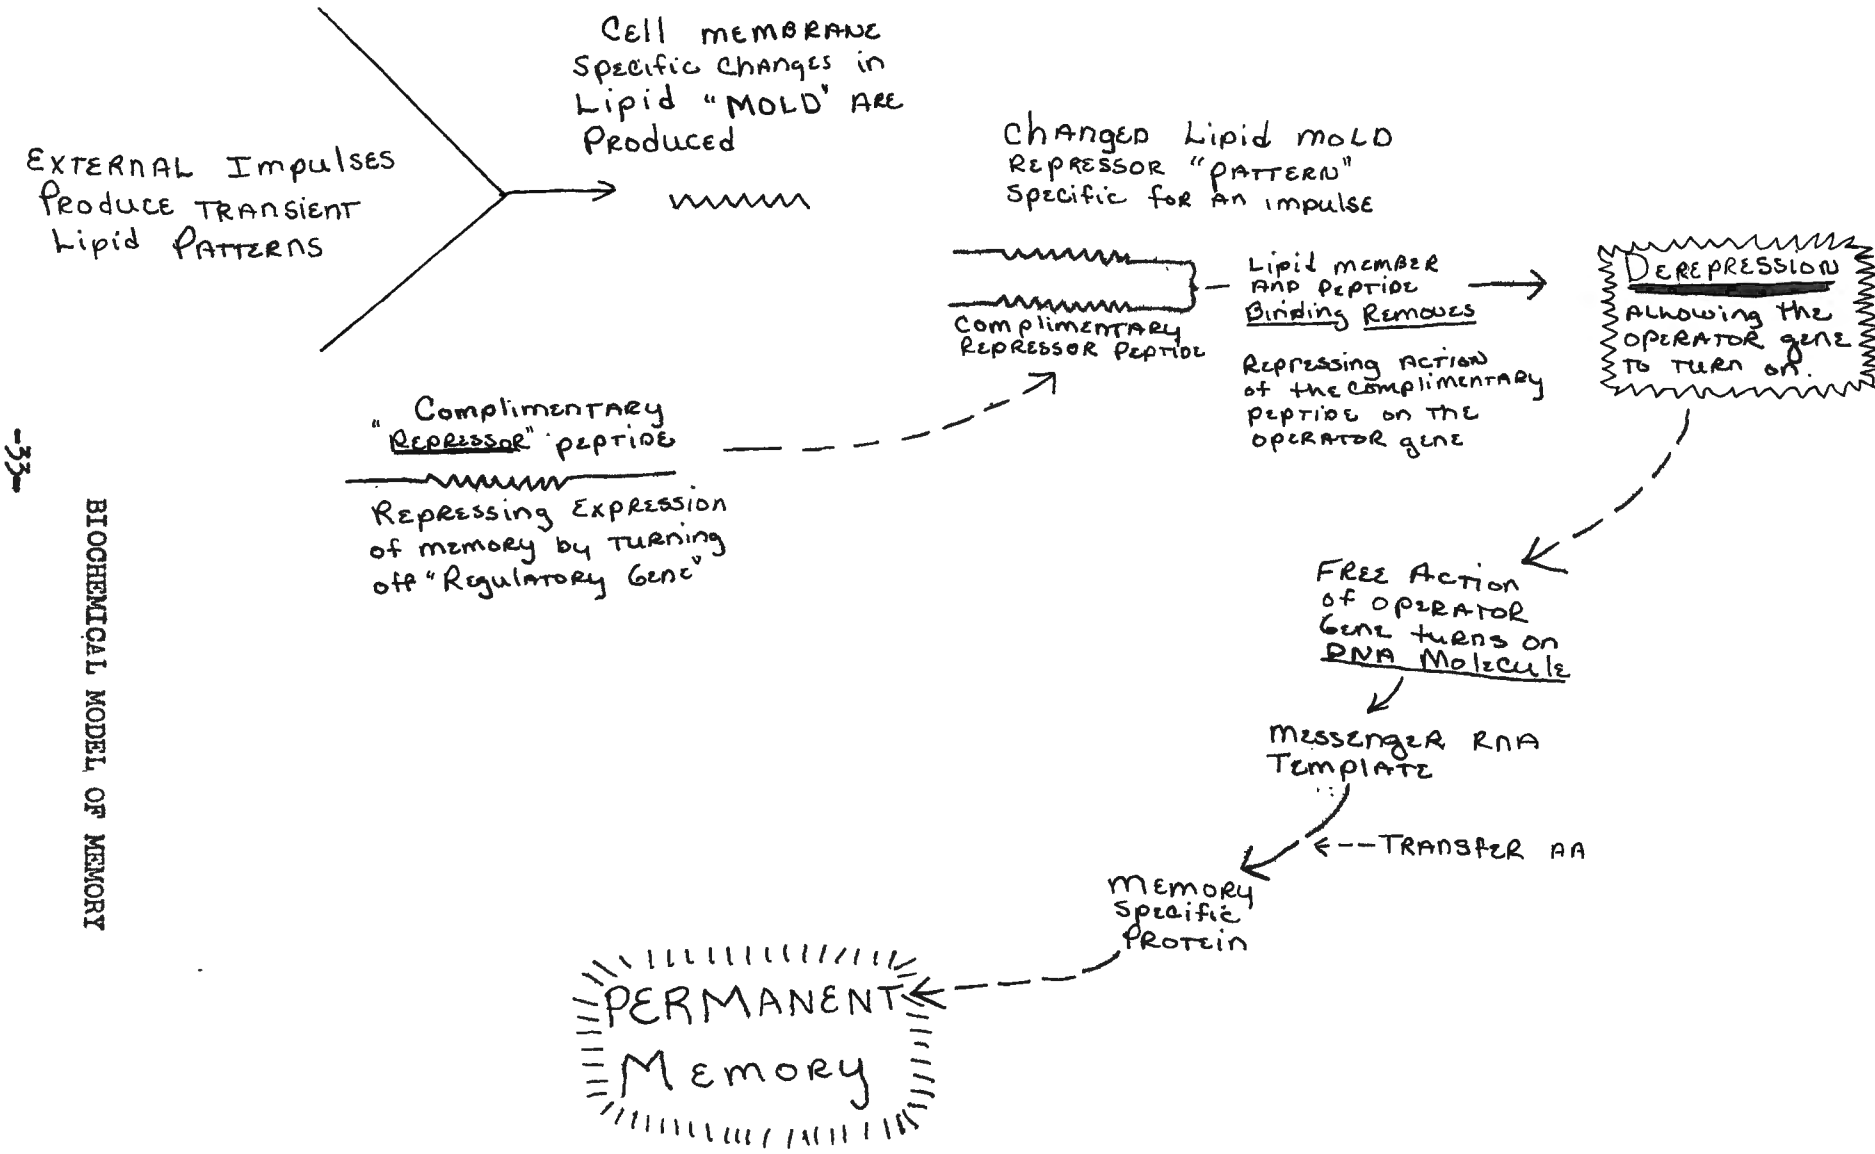 EXTERNAL Impulses
Produce TRANSIENT
Lipid PATTERNS
Cell MEMBRANE
Specific Changes in
Lipid "MOLD" ARE
Produced
Changed Lipid MOLD
REPRESSOR "PATTERN"
Specific for AN impulse
Complimentary
Repressor Peptide
Lipid member
AND Peptide
Binding Removes
Repressing Action
of the Complimentary
peptide on the
operator gene
DEREPRESSION
Allowing the
operator gene
to turn on.
Complimentary
"REPRESSOR" peptide
Repressing Expression
of memory by turning
off "Regulatory Gene"
FREE Action
of operator
Gene turns on
DNA Molecule
Messenger RNA
Template
TRANSFER AA
Memory
Specific
Protein
PERMANENT
Memory
-33-
BIOCHEMICAL MODEL OF MEMORY